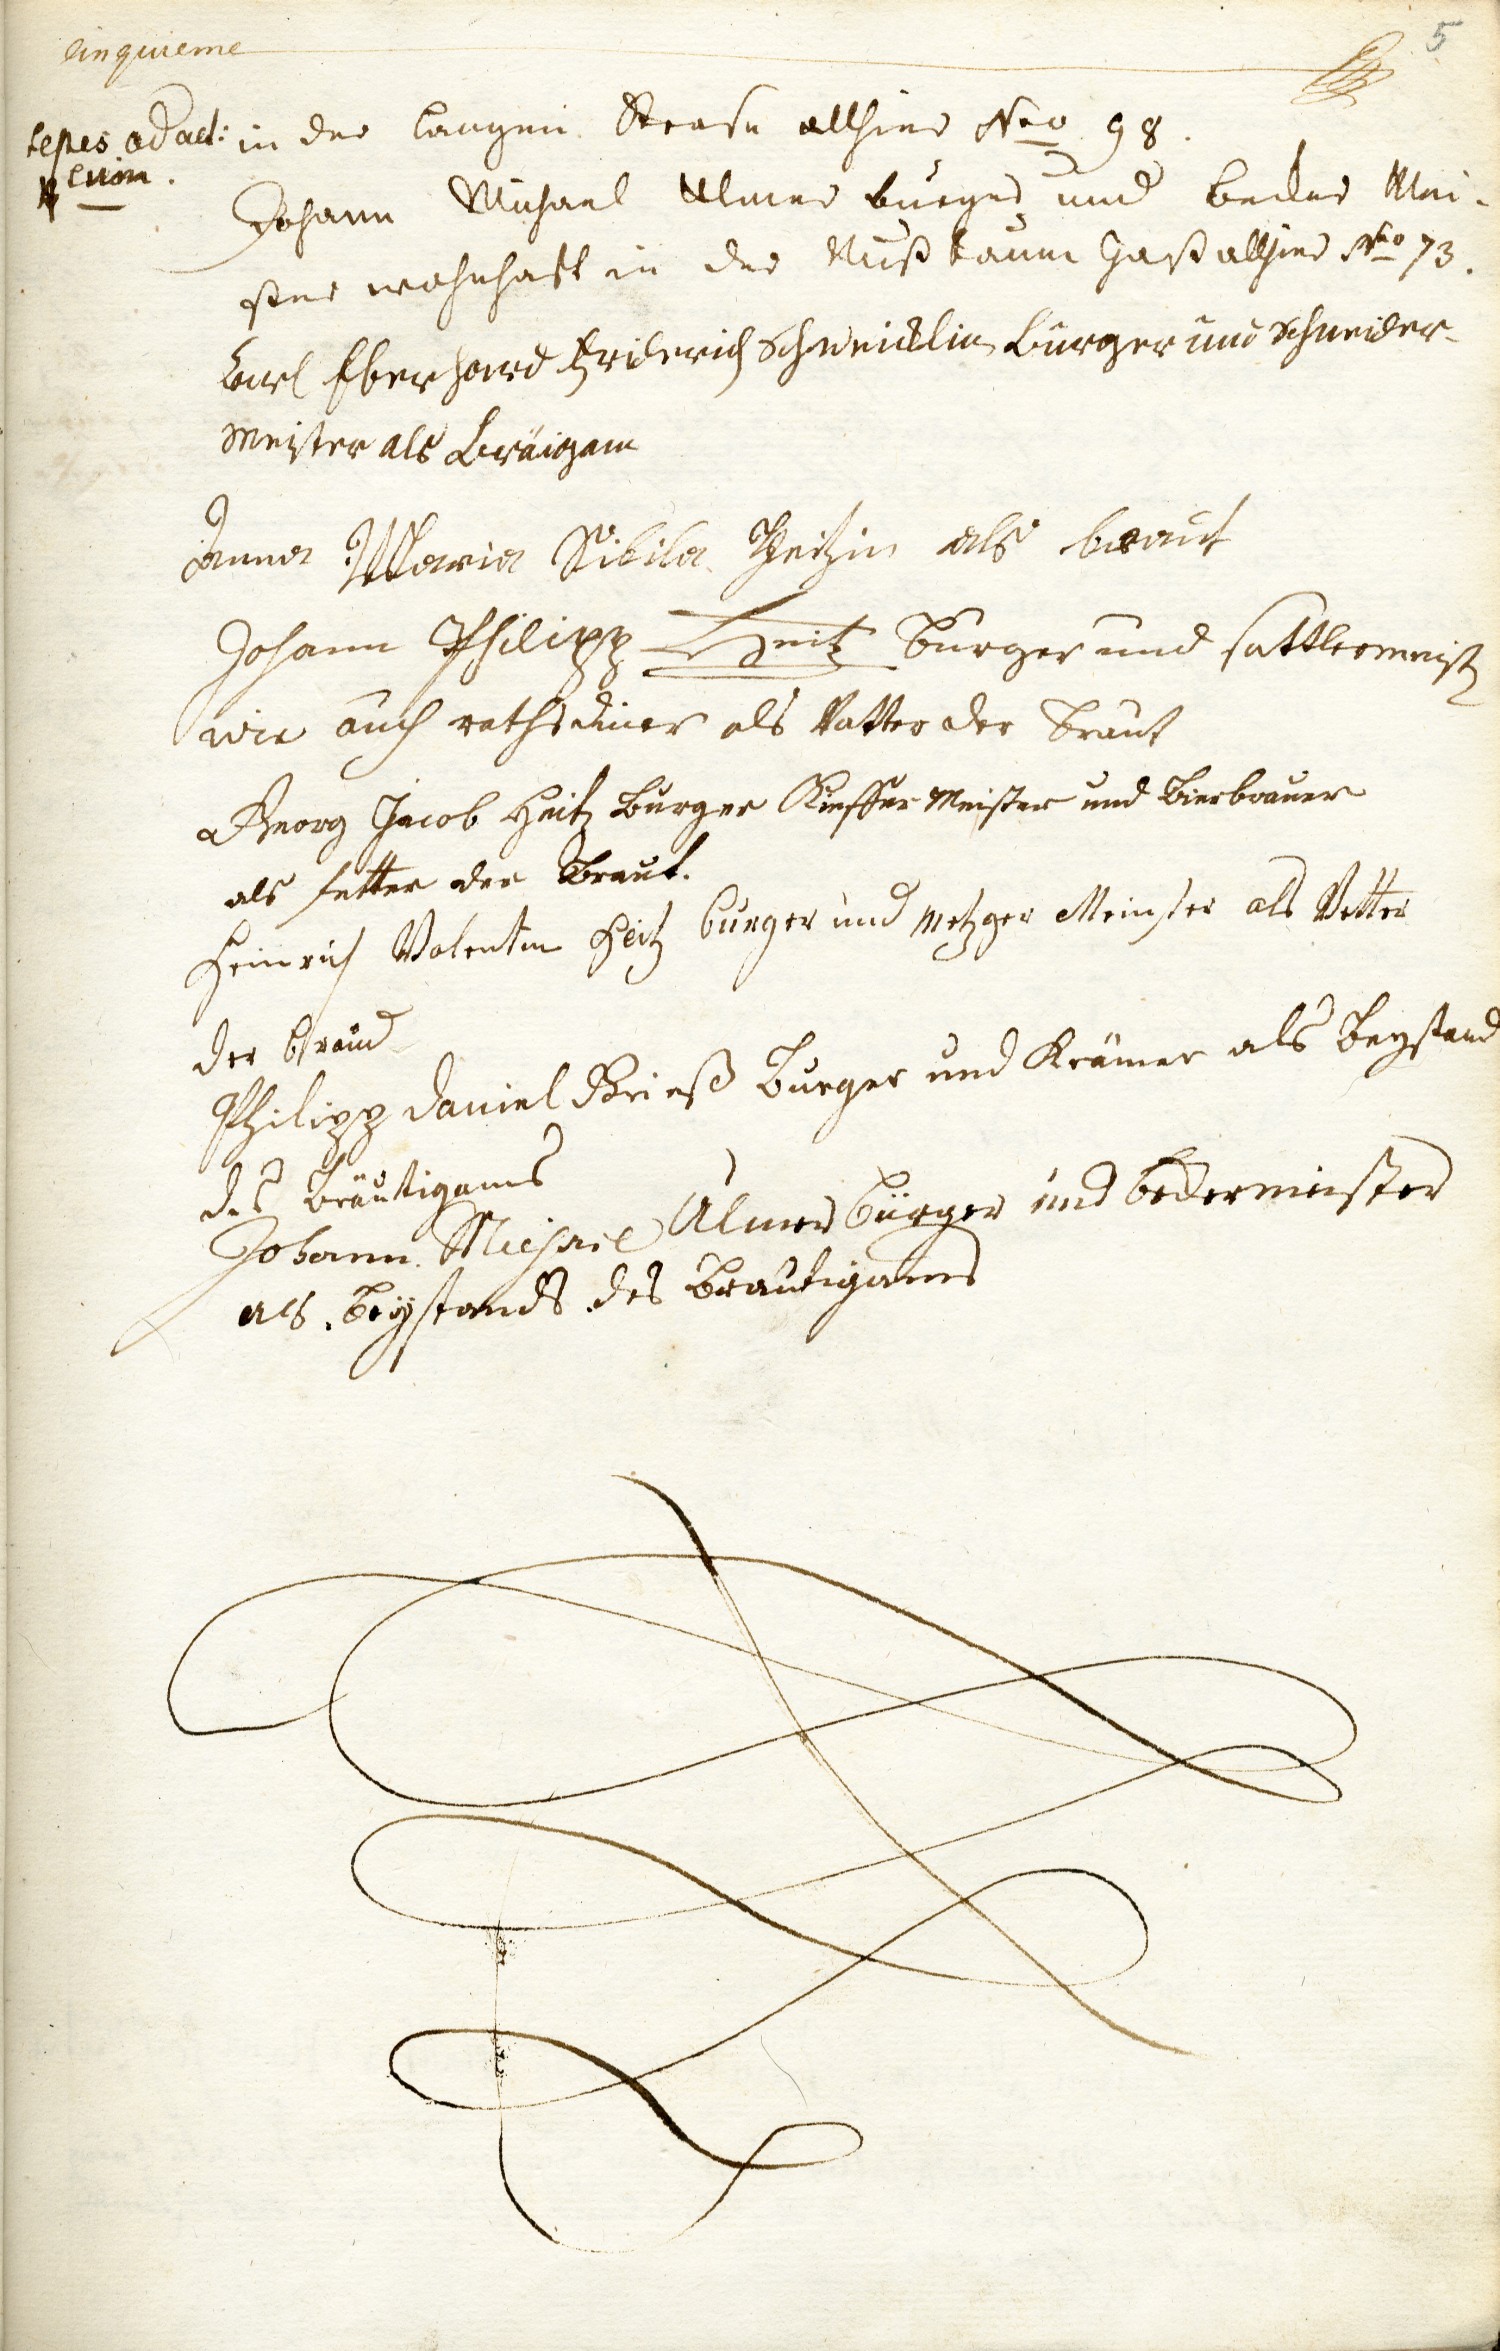 Cinquieme
5
testes ad act:
in der langen Straße allhier Nro 98.
Johann Michael Ulmer burger und becker Mei-
ster wohnhaft in der Nußbaum Gaß allhier Nro 73.
Carl Eberhard Friderich Schneidlin Burger und Schneider-
Meister als Bräigam
Anna Maria Sibila Heitzin als braut
Johann Philipp Heitz Burger und Sattlermeister
wie auch rathsdiner als Vatter der Braut
Georg Jacob Heitz Burger Kieffer Meister und Bierbrauer
als fetter der Braut.
Heinrich Valentin Heitz burger und Metzger Meinster als Vetter
der braud
Philipp Daniel Grieß Burger und Krämer als Beystand
des Bräutigams
Johann Michael Ulmer Bürger und beckerminster
als Beystands des Brautigams